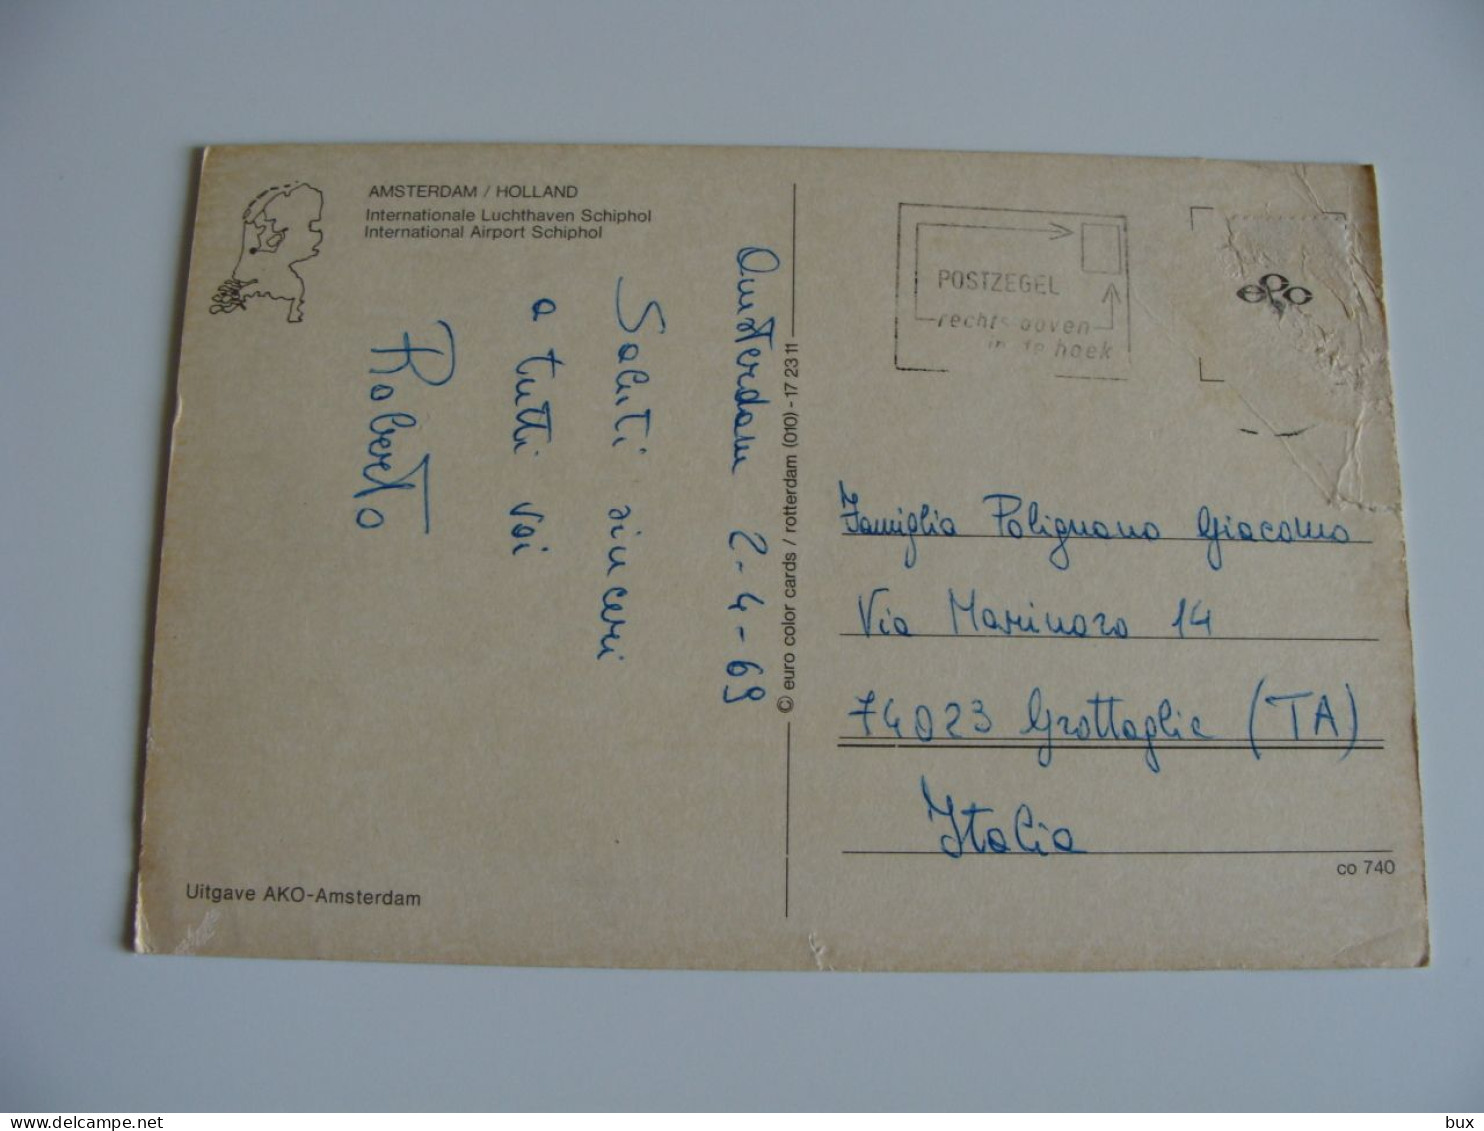 AMSTERDAM / HOLLAND
Internationale Luchthaven Schiphol
International Airport Schiphol
Amsterdam 2-4-69
Saluti sinceri
a tutti voi
Roberto
Uitgave AKO-Amsterdam
© euro color cards / rotterdam (010) - 17 23 11
POSTZEGEL
rechtsboven
in de hoek
epc
Famiglia Polignano Giacomo
Via Marinaro 14
74023 Grottaglie (TA)
Italia
co 740
bux